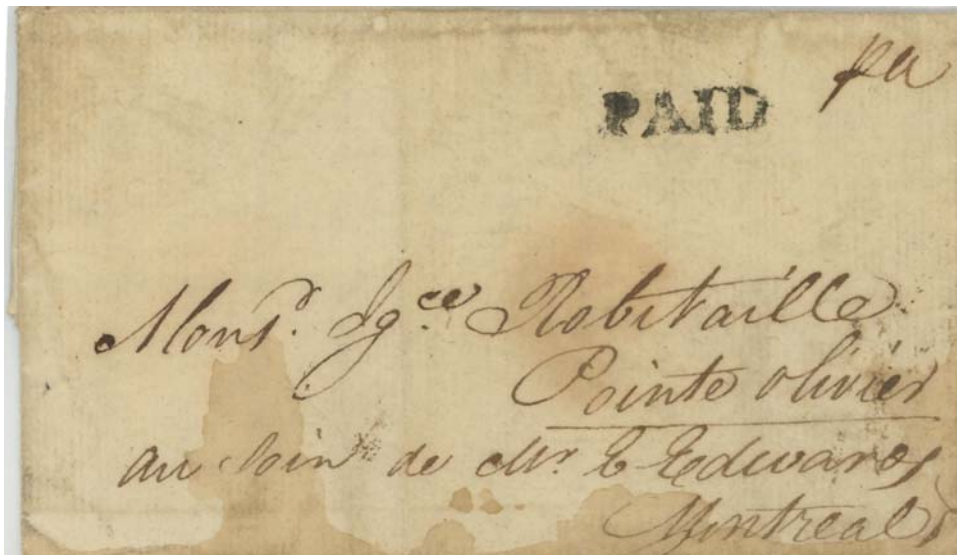 pd
PAID
Monsr. Igce Robitaille
Pointe Olivier
au soin de Mr. E Edwards
Montreal